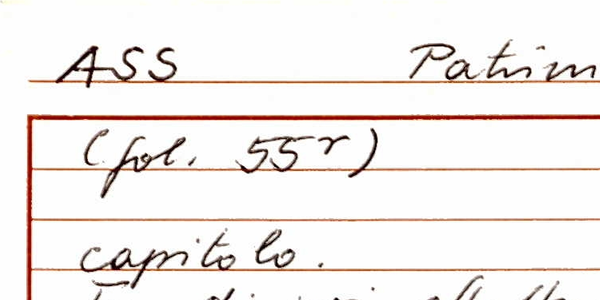 ASS Patrim
(fol. 55r)
capitolo.